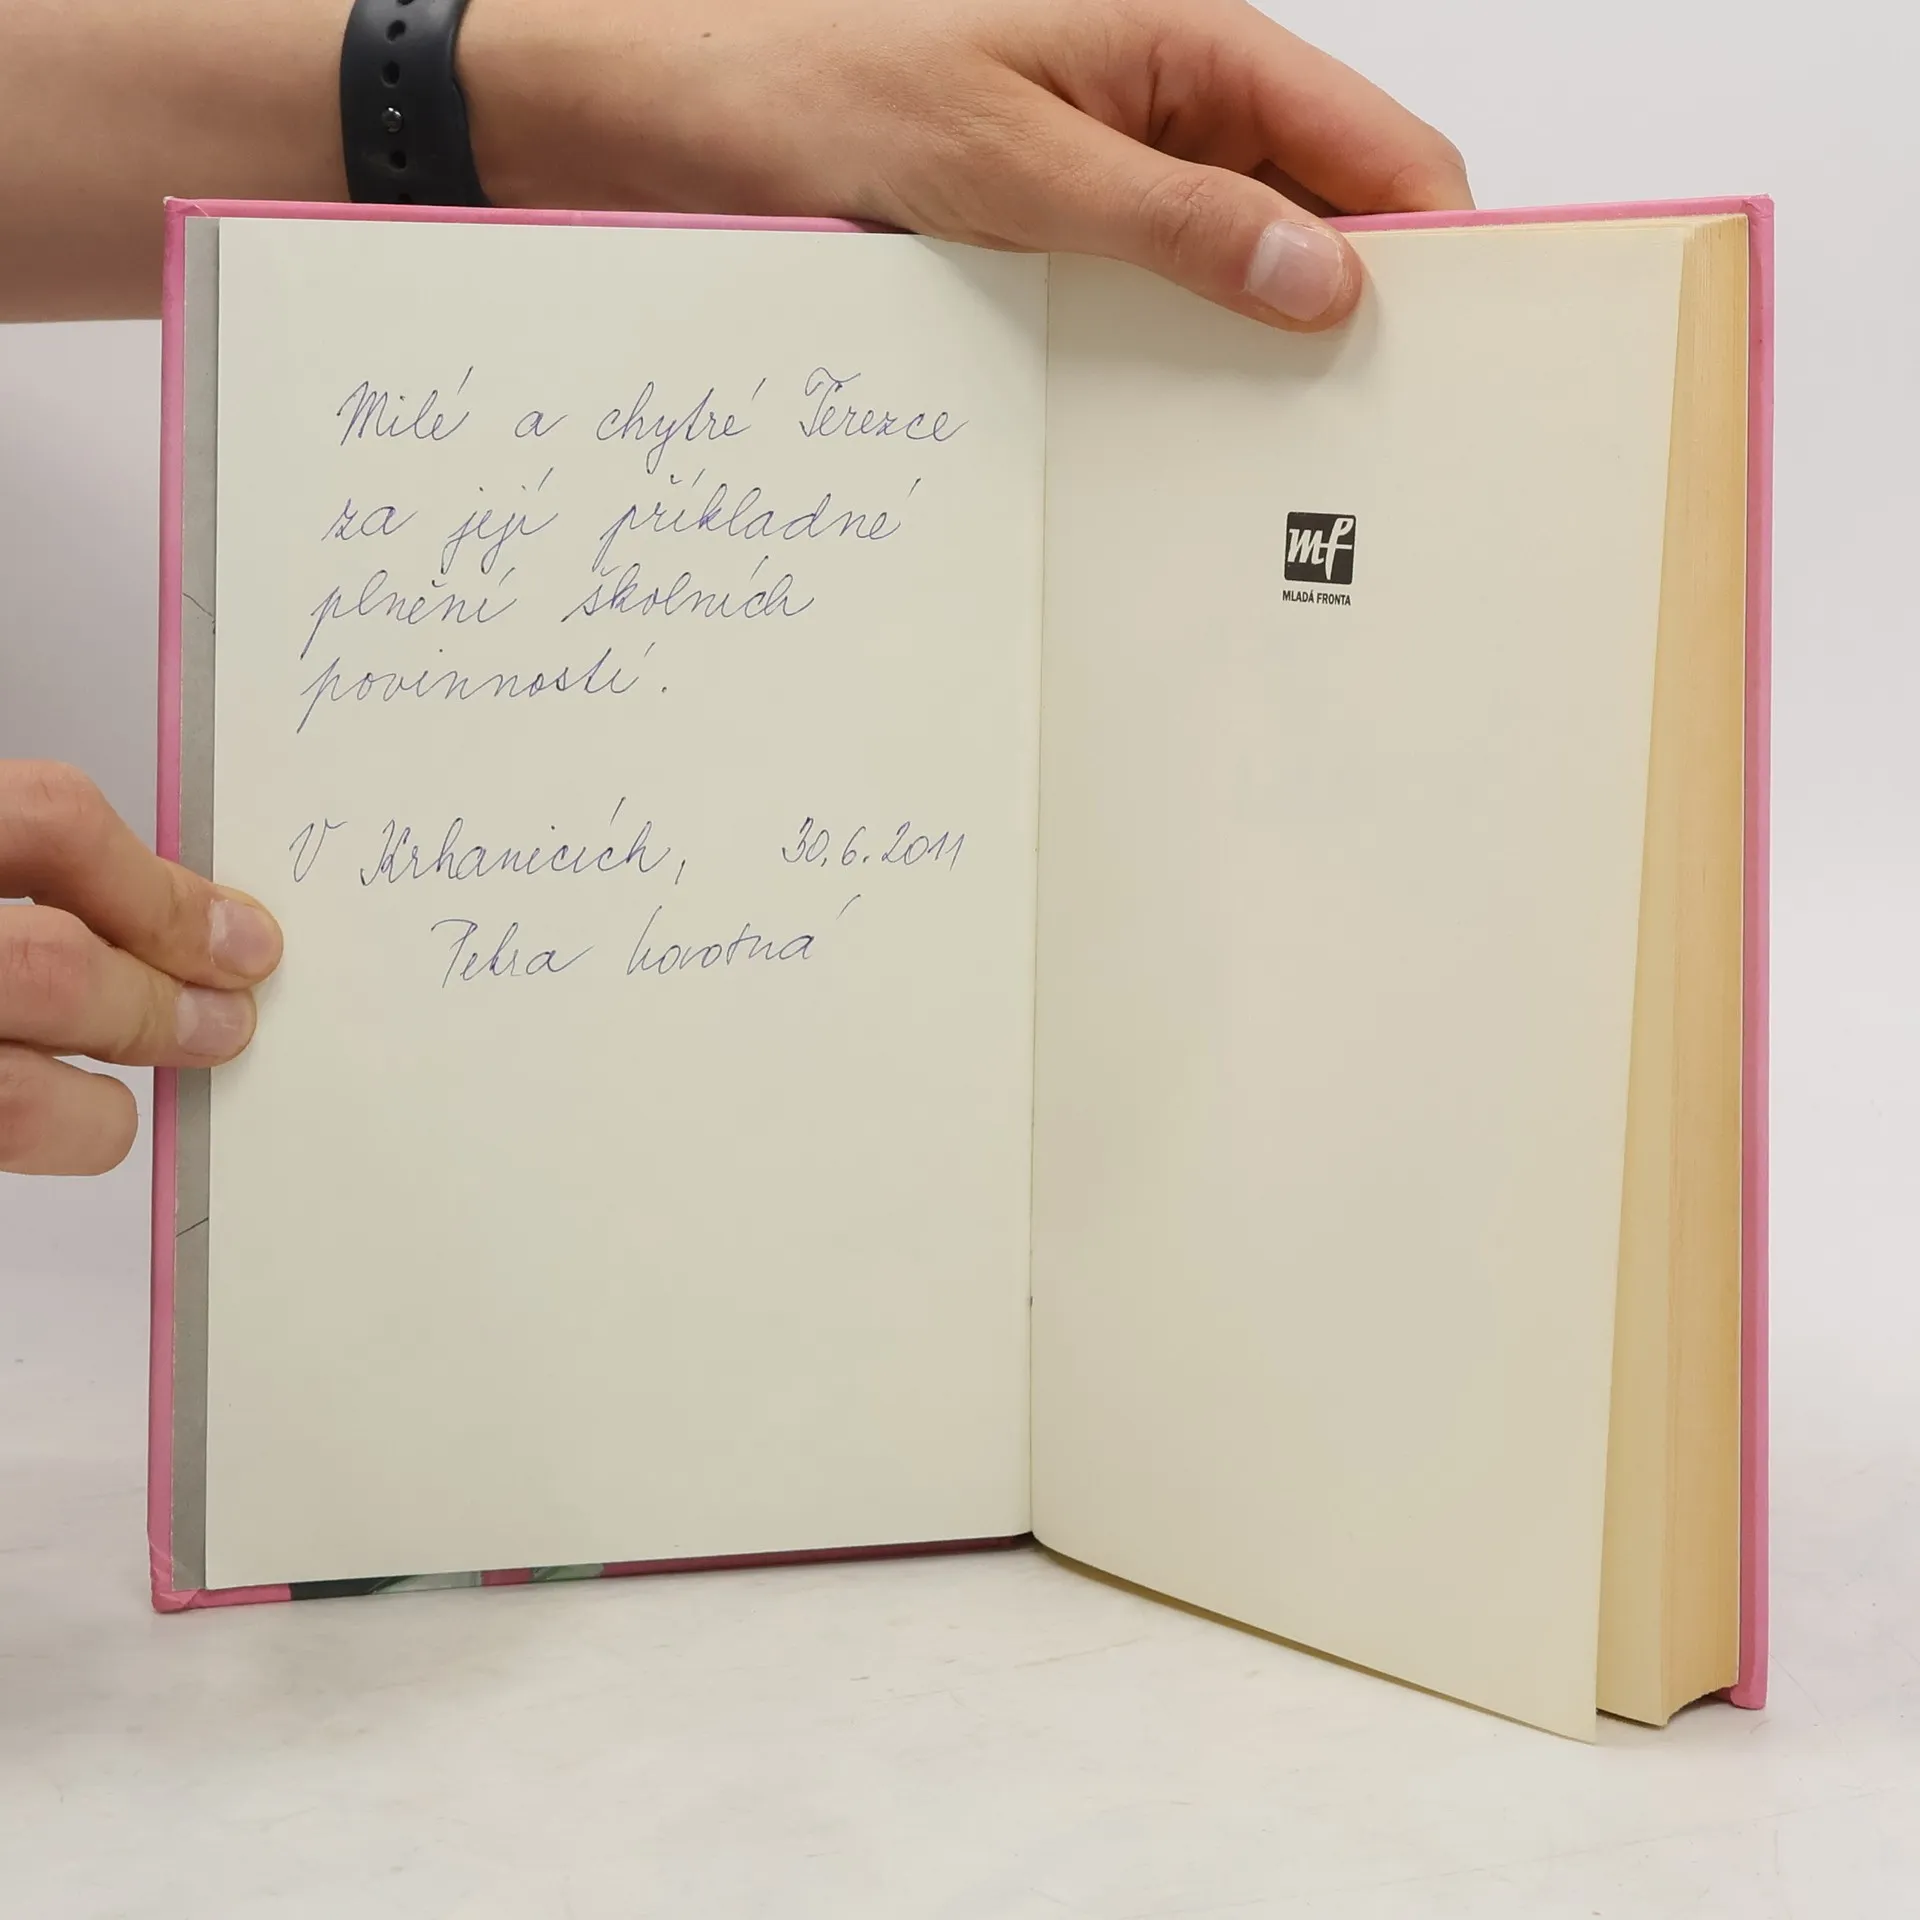 Milé a chytré Terezce
za její příkladné
plnění školních
povinností.
V Krhanicích, 30.6.2011
Petra
mf
MLADÁ FRONTA